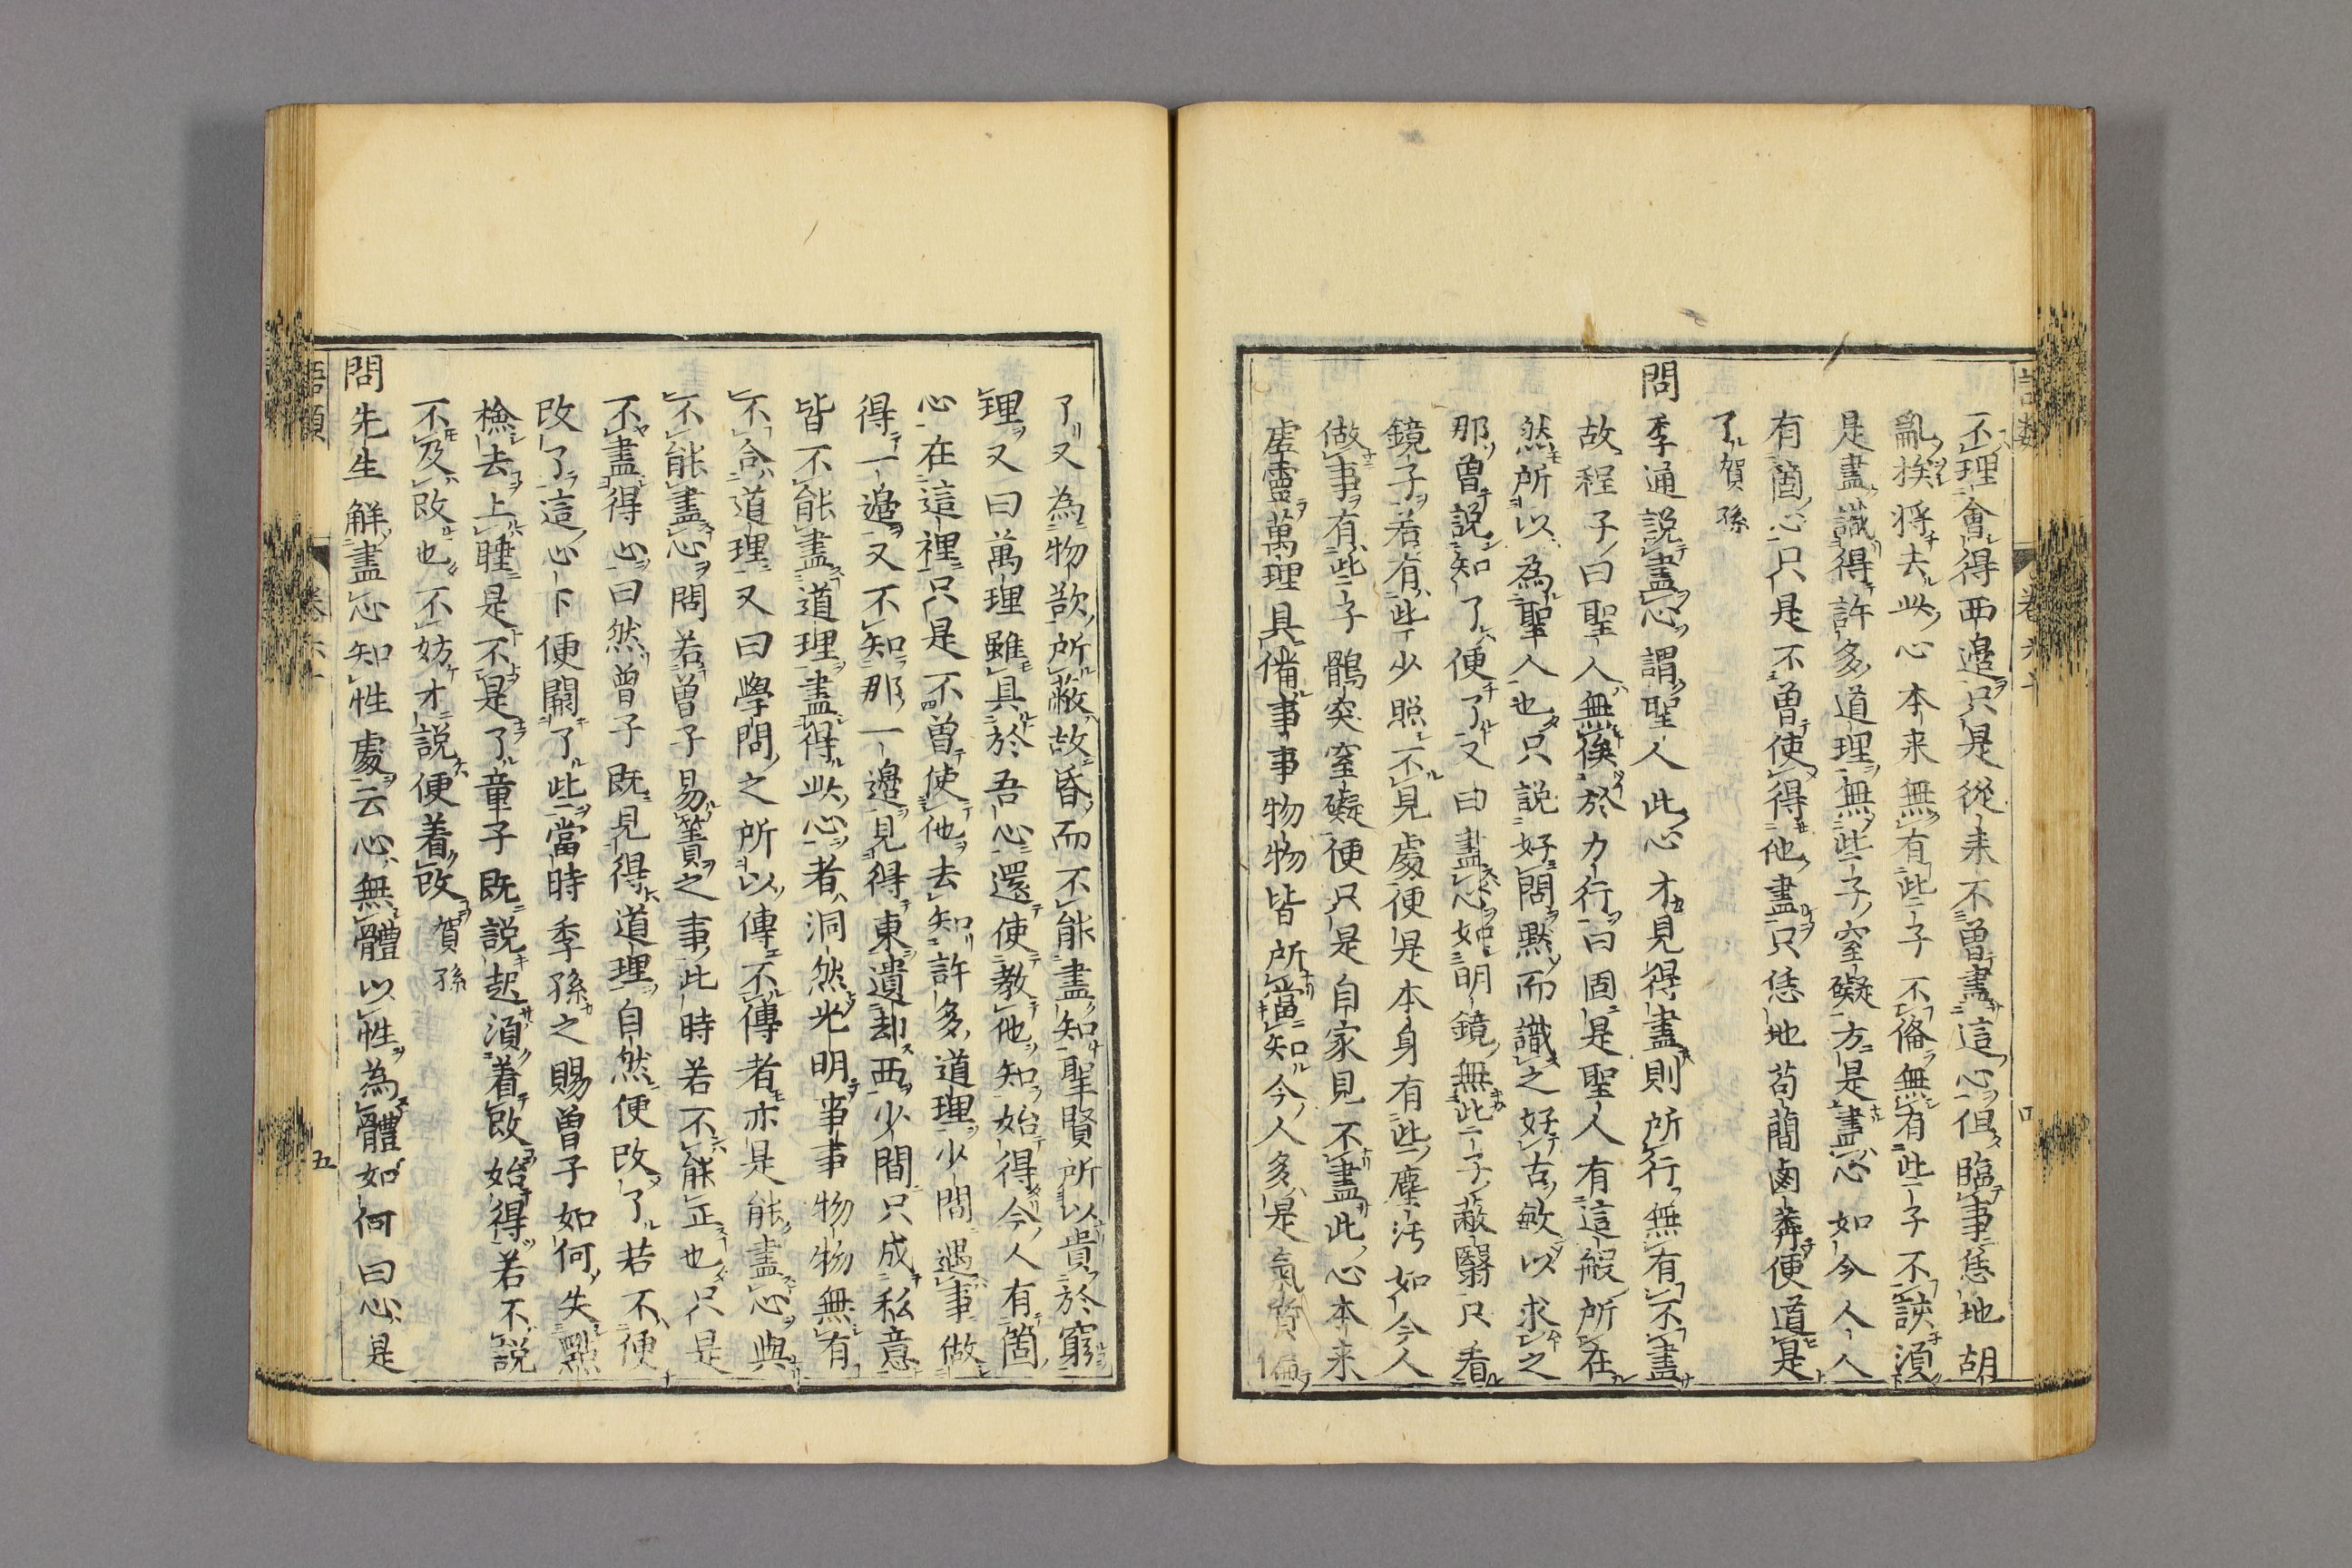 不理會得西邉只是從来不曾盡這心但臨事恁地胡
亂挨将去此心本来無有些子不備無有些子不該湏
是盡識得許多道理無些子窒礙方是盡心如今人人
有箇心只是不曾使得他盡只恁地苟簡鹵莽便道是
了賀孫
問季通説盡心謂聖人此心才見得盡則所行無有不盡
故程子曰聖人無俟於力行曰固是聖人有這般所在
然所以為聖人也只説好問黙而識之好古敏以求之
那曽説知了便了又曰盡心如明鏡無些子蔽翳只看
鏡子若有些少照不見處便是本身有些塵汚如今人
做事有些子鶻突窒礙便只是自家見不盡此心本来
虚靈萬理具備事事物物皆所當知今人多是氣質偏
了又為物欲所蔽故昏而不能盡知聖賢所以貴於窮
理又曰萬理雖具於吾心還使教他知始得今人有箇
心在這裡只是不曽使他去知許多道理少間遇事做
得一邉又不知那一邉見得東遺却西少間只成私意
皆不能盡道理盡得此心者洞然光明事事物物無有
不合道理又曰學問之所以傳不傳者亦是能盡心與
不能盡心問若曽子易簀之事此時若不能正也只是
不盡得心曰然曽子既見得道理自然便改了若不便
改了這心下便闕了此當時季孫之賜曽子如何失點
檢去上睡是不是了童子既説起湏着改始得若不説
不及改也不妨才説便着改賀孫
問先生解盡心知性處云心無體以性為體如何曰心是
語類
卷六十
五